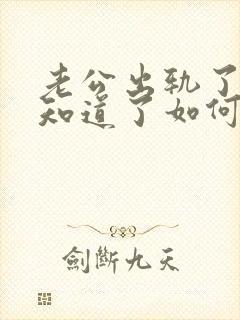 老公出轨了
知道了如何
劍斷九天